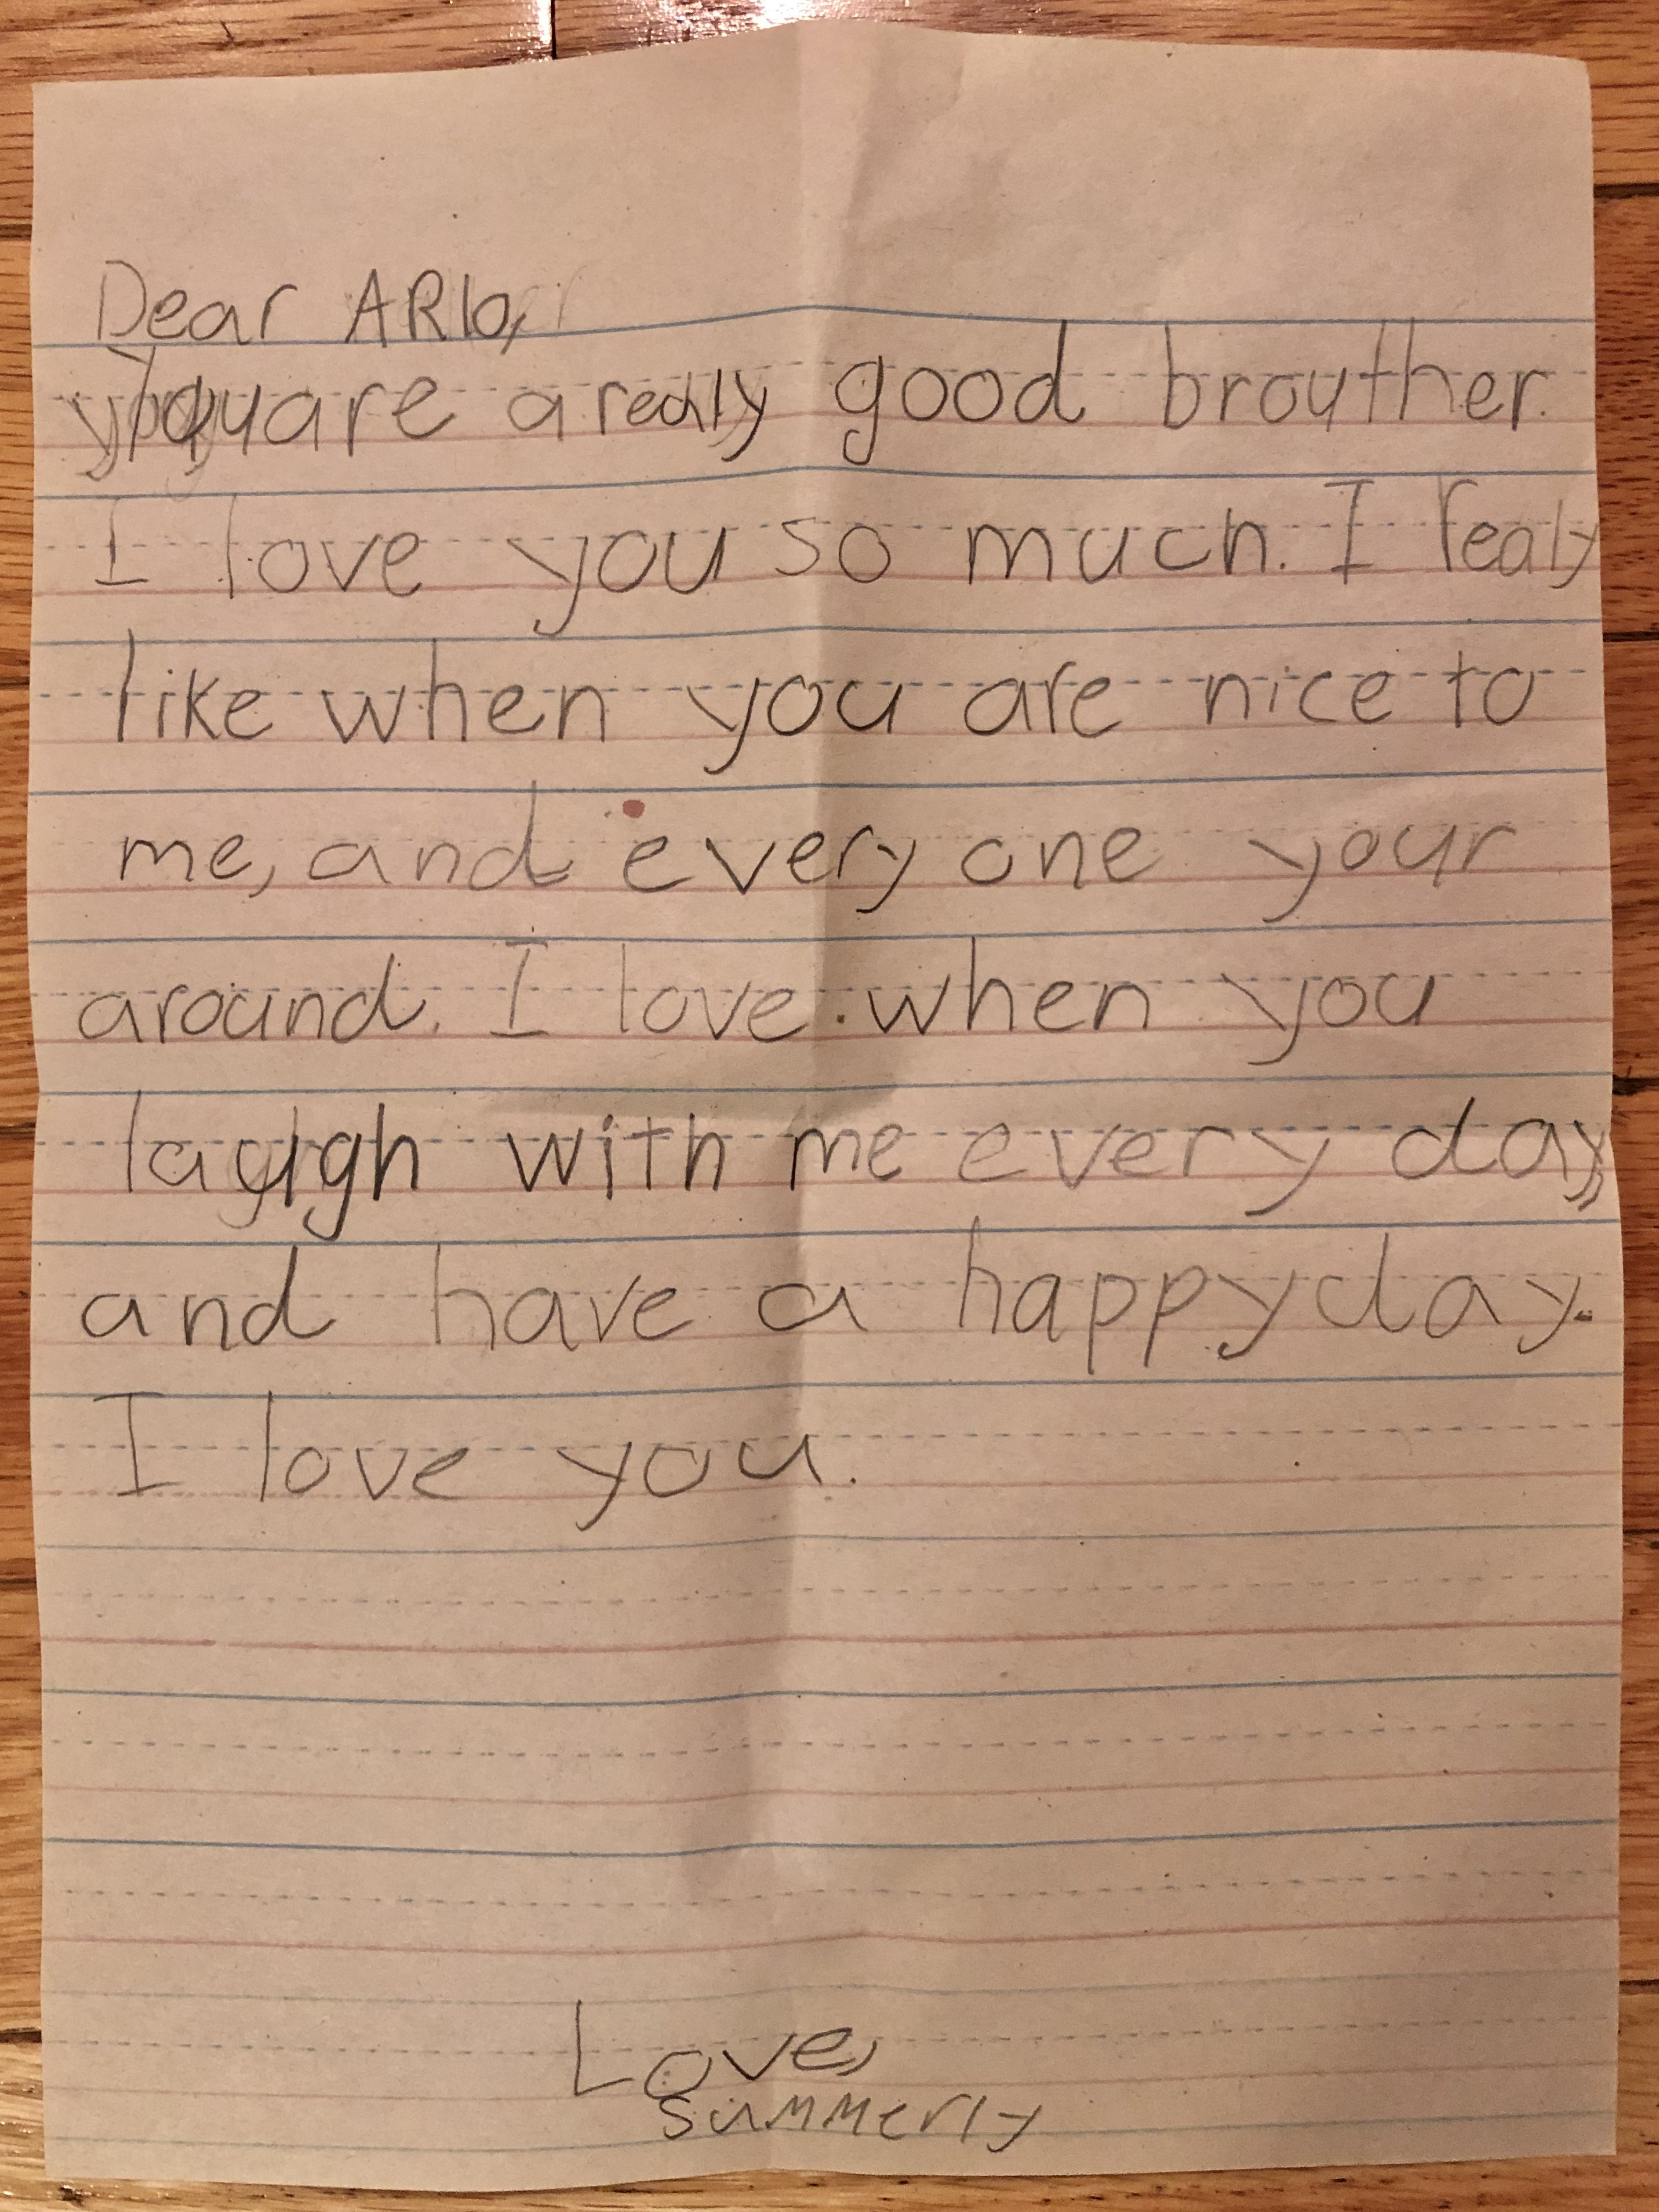 Dear ARlo,
You are a really good brouther.
I love you so much. I realy
like when you are nice to
me, and every one your
around. I love when you
laugh with me every day,
and have a happy day.
I love you.
Love,
summerly